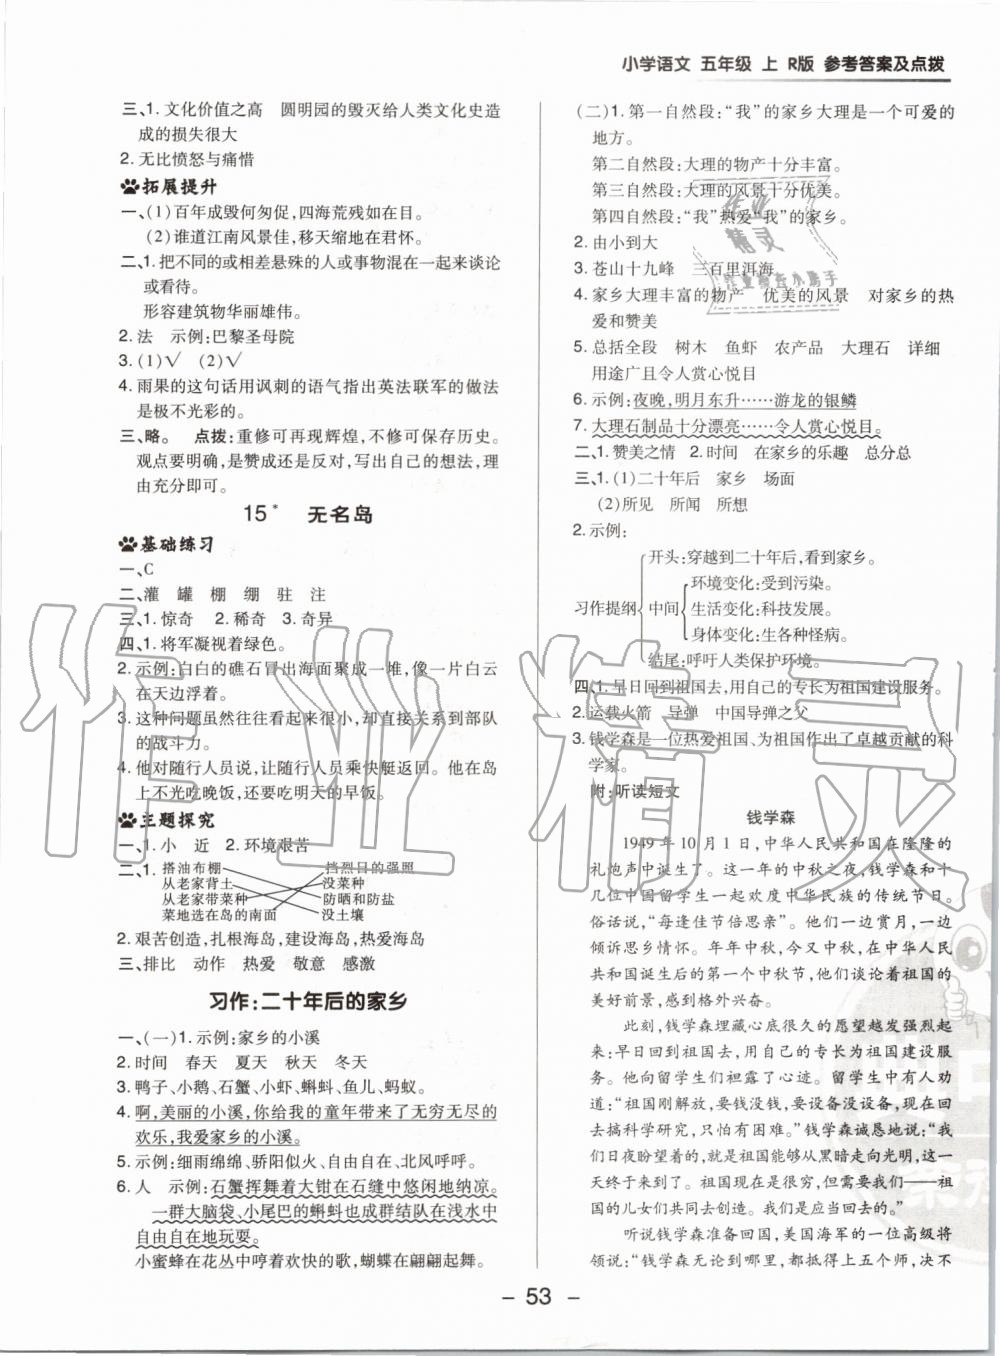 小学语文 五年级 上 R版 参考答案及点拨
三、1. 文化价值之高 圆明园的毁灭给人类文化史造
成的损失很大
2. 无比愤怒与痛惜
拓展提升
一、(1)百年成毁何匆促,四海荒残如在目。
(2)谁道江南风景佳,移天缩地在君怀。
二、1. 把不同的或相差悬殊的人或事物混在一起谈论
或看待。
形容建筑物华丽雄伟。
2. 法 示例:巴黎圣母院
3. (1)√ (2)√
4. 雨果的这句话用讽刺的语气指出英法联军的做法
是极不光彩的。
三、略。 点拨:重修可再现辉煌,不修可保存历史。
观点要明确,是赞成还是反对,写出自己的想法,理
由充分即可。
15* 无名岛
基础练习
一、C
二、灌 罐 棚 绷 驻 注
三、1. 惊奇 2. 稀奇 3. 奇异
四、1. 将军凝视着绿色。
2. 示例:白白的礁石冒出海面聚成一堆,像一片白云
在天边浮着。
3. 这种问题虽然往往看起来很小,却直接关系到部队
的战斗力。
4. 他对随行人员说,让随行人员乘快艇返回。他在岛
上不光吃晚饭,还要吃明天的早饭。
主题探究
一、1. 小 近 2. 环境艰苦
二、1. 搭油布棚 挡烈日的强照
从老家背土 没菜种
从老家带菜种 防晒和防盐
菜地选在岛的南面 没土壤
2. 艰苦创造,扎根海岛,建设海岛,热爱海岛
三、排比 动作 热爱 敬意 感激
习作:二十年后的家乡
一、(一)1. 示例:家乡的小溪
2. 时间 春天 夏天 秋天 冬天
3. 鸭子、小鹅、石蟹、小虾、蝌蚪、鱼儿、蚂蚁。
4. 啊,美丽的小溪,你给我的童年带来了无穷无尽的
欢乐,我爱家乡的小溪。
5. 示例:细雨绵绵、骄阳似火、北风呼呼。
6. 人 示例:石蟹挥舞着大钳在石缝中悠闲地纳凉。
一群大脑袋、小尾巴的蝌蚪也成群结队在浅水中
自由自在地玩耍。
小蜜蜂在花丛中哼着欢快的歌,蝴蝶在翩翩起舞。
(二)1. 第一自然段:“我”的家乡大理是一个可爱的
地方。
第二自然段:大理的物产十分丰富。
第三自然段:大理的风景十分优美。
第四自然段:“我”热爱“我”的家乡。
2. 由小到大
3. 苍山十九峰 三百里洱海
4. 家乡大理丰富的物产 优美的风景 对家乡的热
爱和赞美
5. 总括全段 树木 鱼虾 农产品 大理石 详细
用途广且令人赏心悦目
6. 示例:夜晚,明月东升……游龙的银鳞
7. 大理石制品十分漂亮……令人赏心悦目。
二、1. 赞美之情 2. 时间 在家乡的乐趣 总分总
三、1. (1)二十年后 家乡 场面
(2)所见 所闻 所想
2. 示例:
开头:穿越到二十年后,看到家乡。
环境变化:受到污染。
习作提纲 中间 生活变化:科技发展。
身体变化:生各种怪病。
结尾:呼吁人类保护环境。
四、1. 早日回到祖国去,用自己的专长为祖国建设服务。
2. 运载火箭 导弹 中国导弹之父
3. 钱学森是一位热爱祖国、为祖国作出了卓越贡献的科
学家。
附:听读短文
钱学森
1949 年 10 月 1 日,中华人民共和国在隆隆的
礼炮声中诞生了。这一年的中秋之夜,钱学森和十
几位中国留学生一起欢度中华民族的传统节日。
俗话说,“每逢佳节倍思亲”。他们一边赏月,一边
倾诉思乡情怀。年年中秋,今又中秋,在中华人民
共和国诞生后的第一个中秋节,他们谈论着祖国的
美好前景,感到格外兴奋。
此刻,钱学森埋藏心底很久的愿望越发强烈起
来:早日回到祖国去,用自己的专长为祖国建设服
务。他向留学生们袒露了心迹。留学生中有人劝
道:“祖国刚解放,要钱没钱,要设备没设备,现在回
去搞科学研究,只怕有困难。”钱学森诚恳地说:“我
们日夜盼望着的,就是祖国能够从黑暗走向光明,这一
天终于来到了。祖国现在是很穷,但需要我们——祖
国的儿女们共同去创造。我们是应当回去的。”
听说钱学森准备回国,美国海军的一位高级将
领说:“钱学森无论到哪里,都抵得上五个师,决不
– 53 –
作业精灵
作业精灵
作业检查小助手